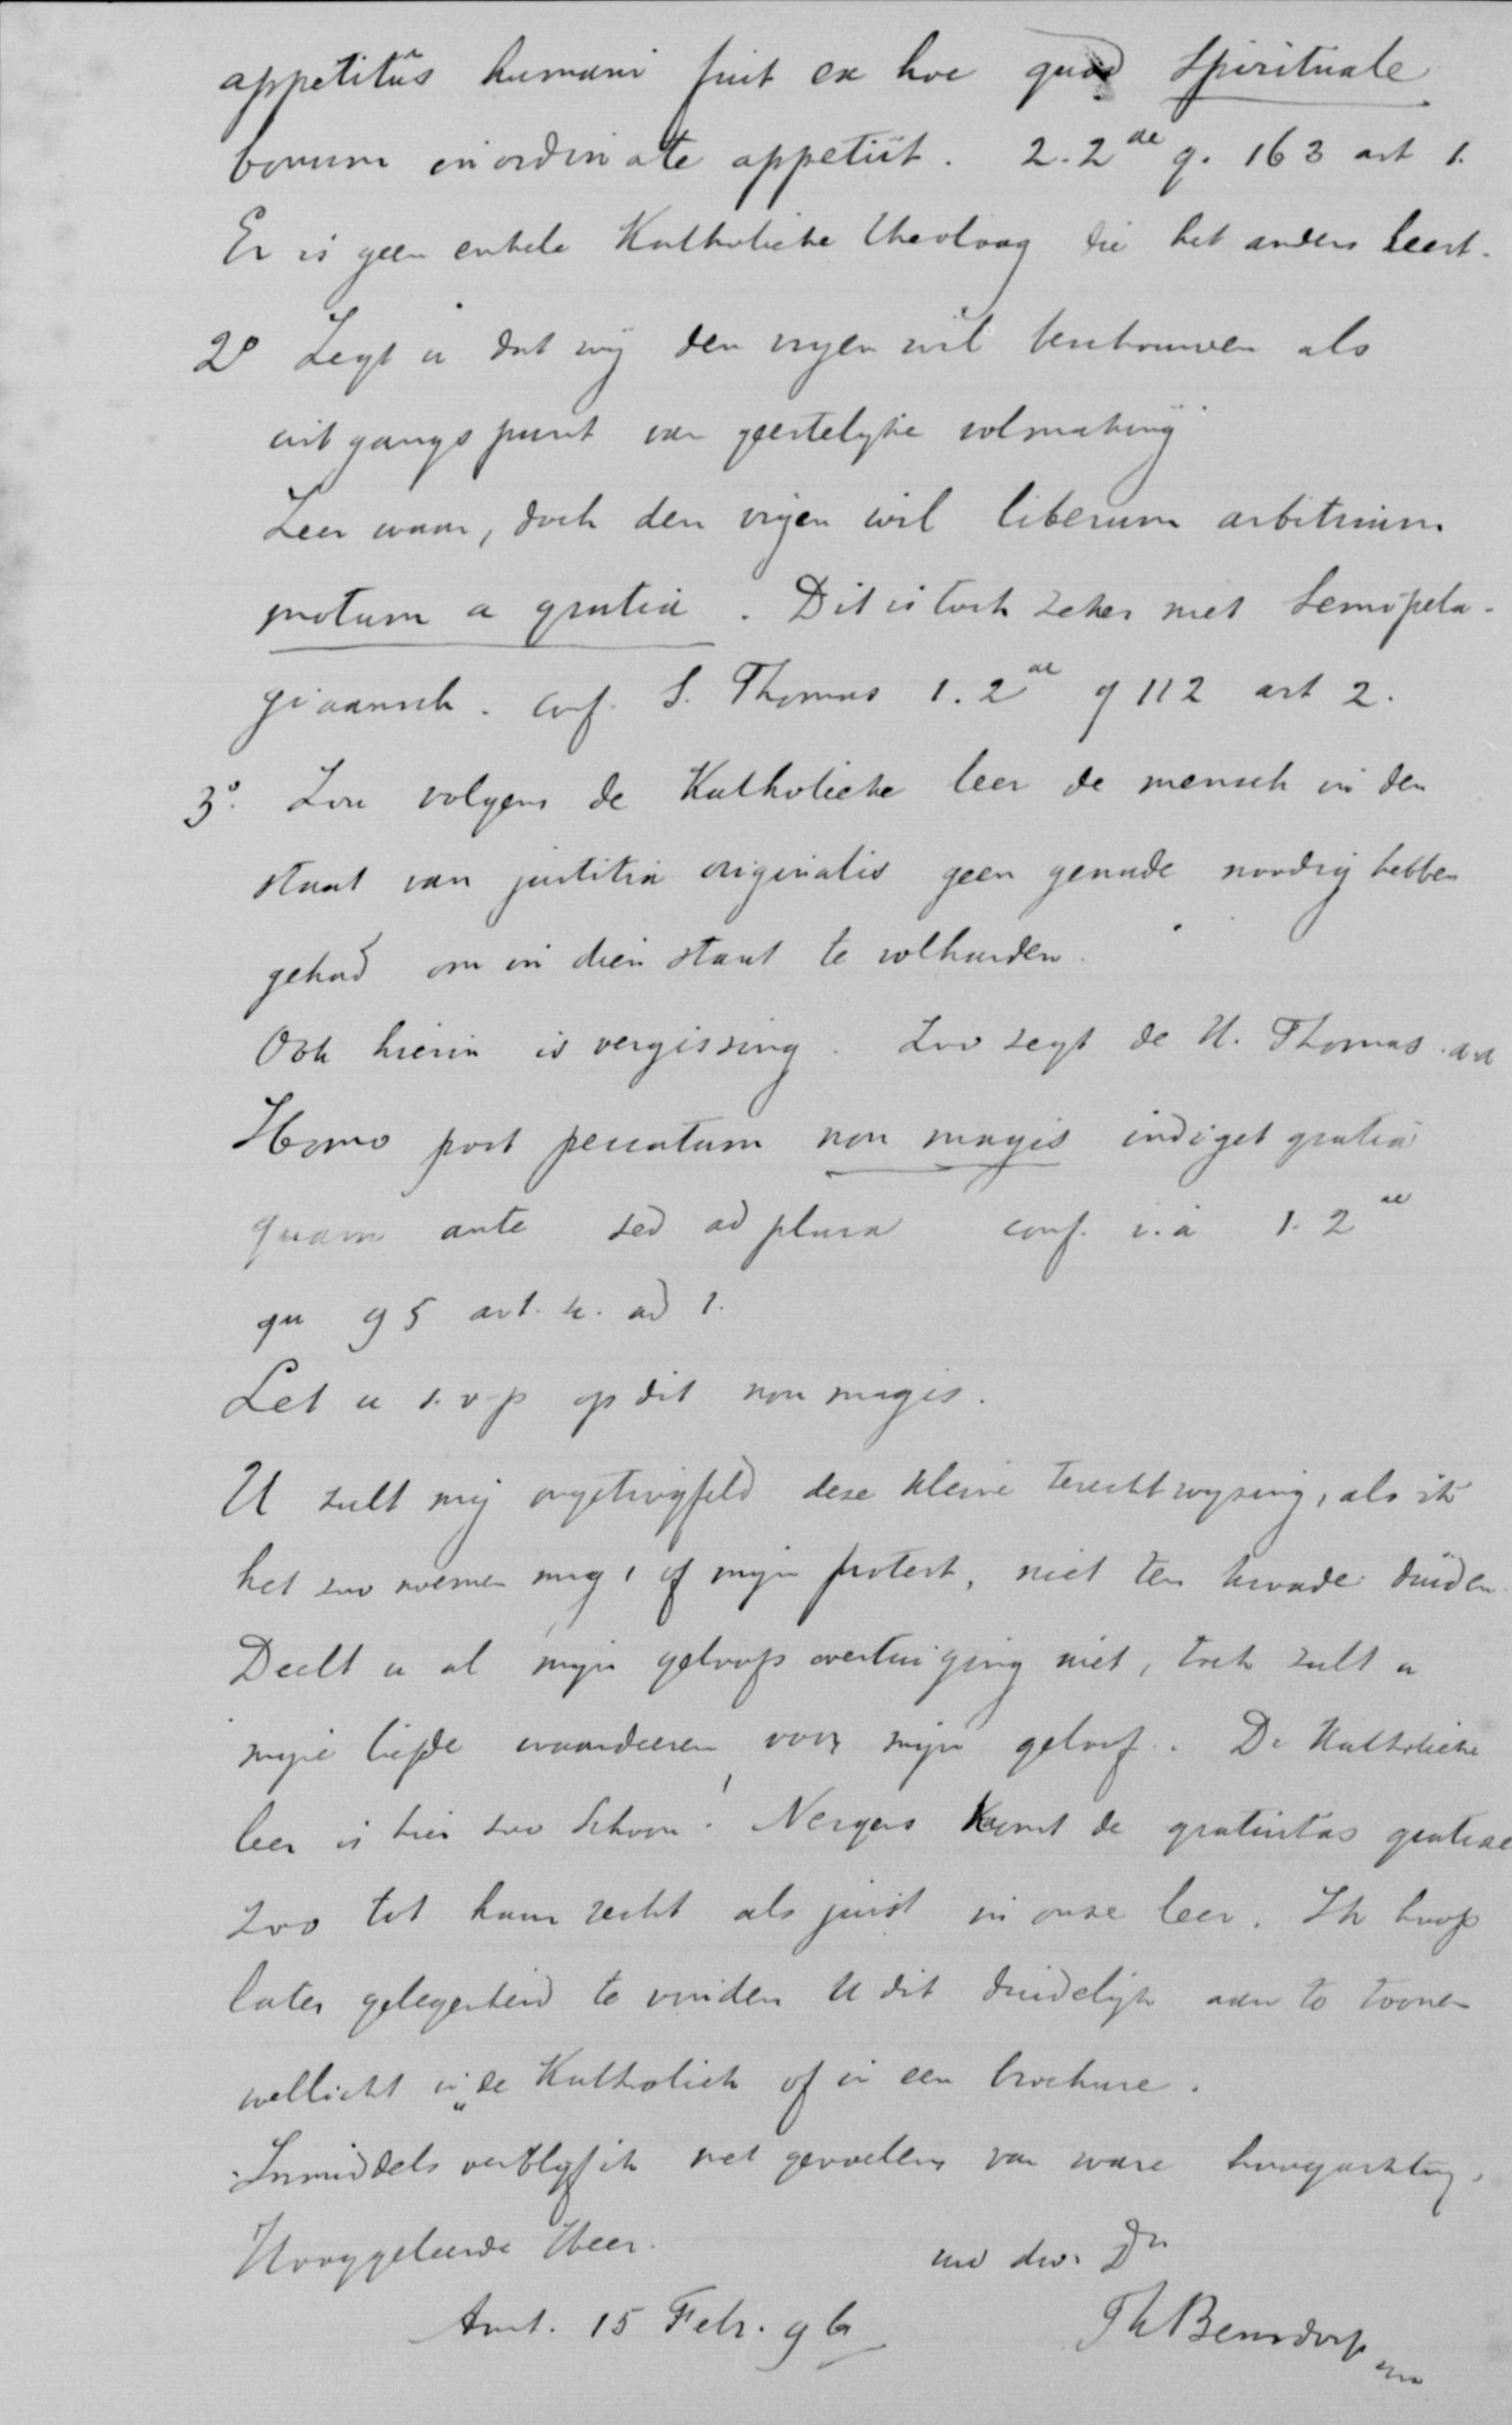 appetitûs humani fuit ex hoc quod spirituale
bonum inordinate appetiit. 2.2ae q. 163 art 1.
Er is geen enkele Katholieke theoloog die het anders leert.
2o Zegt u dat wij den vryen wil beschouwen als
uitgangspunt van geestelyke volmaking
Zeer waar, doch den vryen wil liberum arbitrium
motum a gratiâ. Dit is toch zeker niet Semipela-
giaansch. conf. S. Thomas 1.2ae q 112 art 2.
3o. Zou volgens de Katholieke leer de mensch in den
staat van justitia originalis geen genade noodig hebben
gehad om in dien staat te volharden.
Ook hierin is vergissing. Zoo zegt de H. Thomas
Homo post peccatum non magis indiget gratiâ
quam ante sed ad plura conf. i.a 1.2ae
qu 95 art. 4. ad 1.
Let u s.v.p op dit non magis.
U zult mij ongetwyfeld deze kleine terechtwyzing, als ik
het zoo noemen mag, of myn protest, niet ten kwade duiden.
Deelt u al myn geloofsovertuiging niet, toch zult u
myne liefde waardeeren voor myn geloof. De Katholieke
leer is hier zoo schoon! Nergens komt de gratuitas gratiae
zoo tot haar recht als juist in onze leer. Ik hoop
later gelegenheid te vinden U dit duidelyk aan te toonen
wellicht in „de Katholiek of in een brochure.
Inmiddels verblyf ik met gevoelens van ware hoogachting,
Hooggeleerde Heer.
uw dw. Dr
Amst. 15 Febr. 96
Th Bensdorp